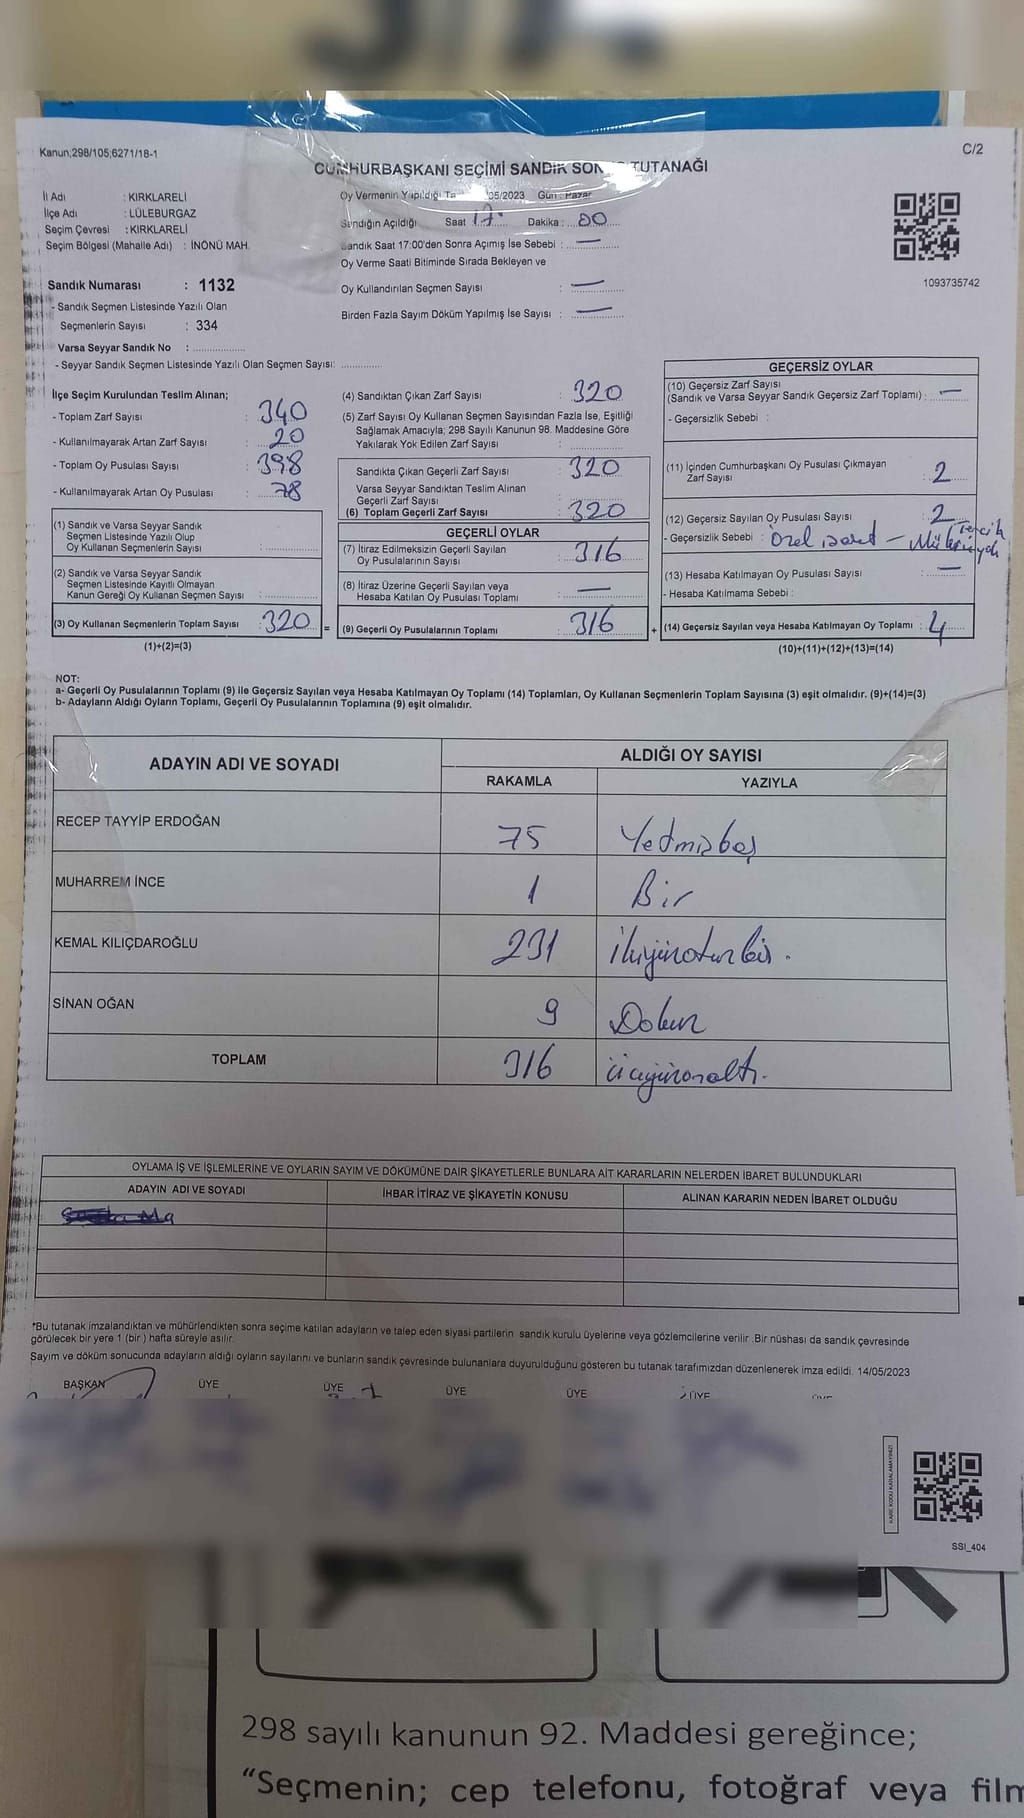 Kanun;298/105;6271/18-1
C/2
CUMHURBAŞKANI SEÇİMİ SANDIK TUTANAĞI
İl Adı : KIRKLARELİ
İlçe Adı : LÜLEBURGAZ
Seçim Çevresi : KIRKLARELİ
Seçim Bölgesi (Mahalle Adı) : İNÖNÜ MAH.
Oy Vermenin Yapıldığı 05/2023 Gün : Pazar
Sandığın Açıldığı Saat 17. Dakika : 00
Sandık Saat 17:00'den Sonra Açımış İse Sebebi : —
Oy Verme Saati Bitiminde Sırada Bekleyen ve
Oy Kullandırılan Seçmen Sayısı : —
Birden Fazla Sayım Döküm Yapılmış İse Sayısı : —
1093735742
Sandık Numarası : 1132
- Sandık Seçmen Listesinde Yazılı Olan
Seçmenlerin Sayısı : 334
Varsa Seyyar Sandık No :
- Seyyar Sandık Seçmen Listesinde Yazılı Olan Seçmen Sayısı:
İlçe Seçim Kurulundan Teslim Alınan;
- Toplam Zarf Sayısı : 340
- Kullanılmayarak Artan Zarf Sayısı : 20
- Toplam Oy Pusulası Sayısı : 398
- Kullanılmayarak Artan Oy Pusulası : 78
(1) Sandık ve Varsa Seyyar Sandık
Seçmen Listesinde Yazılı Olup
Oy Kullanan Seçmenlerin Sayısı :
(2) Sandık ve Varsa Seyyar Sandık
Seçmen Listesinde Kayıtlı Olmayan
Kanun Gereği Oy Kullanan Seçmen Sayısı :
(3) Oy Kullanan Seçmenlerin Toplam Sayısı : 320 =
(1)+(2)=(3)
(4) Sandıktan Çıkan Zarf Sayısı : 320
(5) Zarf Sayısı Oy Kullanan Seçmen Sayısından Fazla İse, Eşitliği
Sağlamak Amacıyla; 298 Sayılı Kanunun 98. Maddesine Göre
Yakılarak Yok Edilen Zarf Sayısı :
Sandıkta Çıkan Geçerli Zarf Sayısı : 320
Varsa Seyyar Sandıktan Teslim Alınan
Geçerli Zarf Sayısı :
(6) Toplam Geçerli Zarf Sayısı : 320
GEÇERLİ OYLAR
(7) İtiraz Edilmeksizin Geçerli Sayılan
Oy Pusulalarının Sayısı : 316
(8) İtiraz Üzerine Geçerli Sayılan veya
Hesaba Katılan Oy Pusulası Toplamı : —
(9) Geçerli Oy Pusulalarının Toplamı : 316 +
GEÇERSİZ OYLAR
(10) Geçersiz Zarf Sayısı
(Sandık ve Varsa Seyyar Sandık Geçersiz Zarf Toplamı) : —
- Geçersizlik Sebebi :
(11) İçinden Cumhurbaşkanı Oy Pusulası Çıkmayan
Zarf Sayısı : 2
(12) Geçersiz Sayılan Oy Pusulası Sayısı : 2
- Geçersizlik Sebebi : Özel işaret - Tercih
(13) Hesaba Katılmayan Oy Pusulası Sayısı : —
- Hesaba Katılmama Sebebi :
(14) Geçersiz Sayılan veya Hesaba Katılmayan Oy Toplamı : 4
(10)+(11)+(12)+(13)=(14)
NOT:
a- Geçerli Oy Pusulalarının Toplamı (9) ile Geçersiz Sayılan veya Hesaba Katılmayan Oy Toplamı (14) Toplamları, Oy Kullanan Seçmenlerin Toplam Sayısına (3) eşit olmalıdır. (9)+(14)=(3)
b- Adayların Aldığı Oyların Toplamı, Geçerli Oy Pusulalarının Toplamına (9) eşit olmalıdır.
ADAYIN ADI VE SOYADI
ALDIĞI OY SAYISI
RAKAMLA YAZIYLA
RECEP TAYYİP ERDOĞAN 75 Yetmişbeş
MUHARREM İNCE 1 Bir
KEMAL KILIÇDAROĞLU 231 ikiyüzotuzbir.
SİNAN OĞAN 9 Dokuz
TOPLAM 316 üçyüzonaltı.
OYLAMA İŞ VE İŞLEMLERİNE VE OYLARIN SAYIM VE DÖKÜMÜNE DAİR ŞİKAYETLERLE BUNLARA AİT KARARLARIN NELERDEN İBARET BULUNDUKLARI
ADAYIN ADI VE SOYADI İHBAR İTİRAZ VE ŞİKAYETİN KONUSU ALINAN KARARIN NEDEN İBARET OLDUĞU
*Bu tutanak imzalandıktan ve mühürlendikten sonra seçime katılan adayların ve talep eden siyasi partilerin sandık kurulu üyelerine veya gözlemcilerine verilir .Bir nüshası da sandık çevresinde
görülecek bir yere 1 (bir ) hafta süreyle asılır.
Sayım ve döküm sonucunda adayların aldığı oyların sayılarını ve bunların sandık çevresinde bulunanlara duyurulduğunu gösteren bu tutanak tarafımızdan düzenlenerek imza edildi. 14/05/2023
BAŞKAN ÜYE ÜYE ÜYE ÜYE ÜYE ÜYE
KARE KODU KARALAMAYINIZ!
SSI_404
298 sayılı kanunun 92. Maddesi gereğince;
“Seçmenin; cep telefonu, fotoğraf veya film